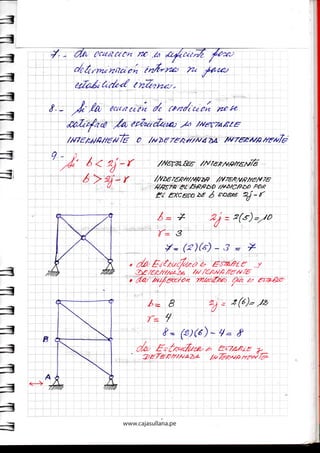 7.- La ecuación no es suficiente para
determinación interna ni para
estabilidad interna.
8.- Si la ecuación de condición no se
satisface la estructura es INESTABLE
INTERNAMENTE O INDETERMINADA INTERNAMENTE
9.-
Si b < 2j - r INESTABLE INTERNAMENTE
b > 2j - r INDETERMINADA INTERNAMENTE
HASTA EL GRADO INDICADO POR
EL EXCESO DE b SOBRE 2j - r
b = 7 2j = 2(5) = 10
r = 3
7 = (2)(5) - 3 = 7
• La Estructura es ESTABLE y
DETERMINADA INTERNAMENTE
• La inspección muestra que es estable
b = 8 2j = 2(6) = 12
r = 4
8 = (2)(6) - 4 = 8
B
. La Estructura es ESTABLE y
DETERMINADA INTERNAMENTE
A
www.cajasullana.pe